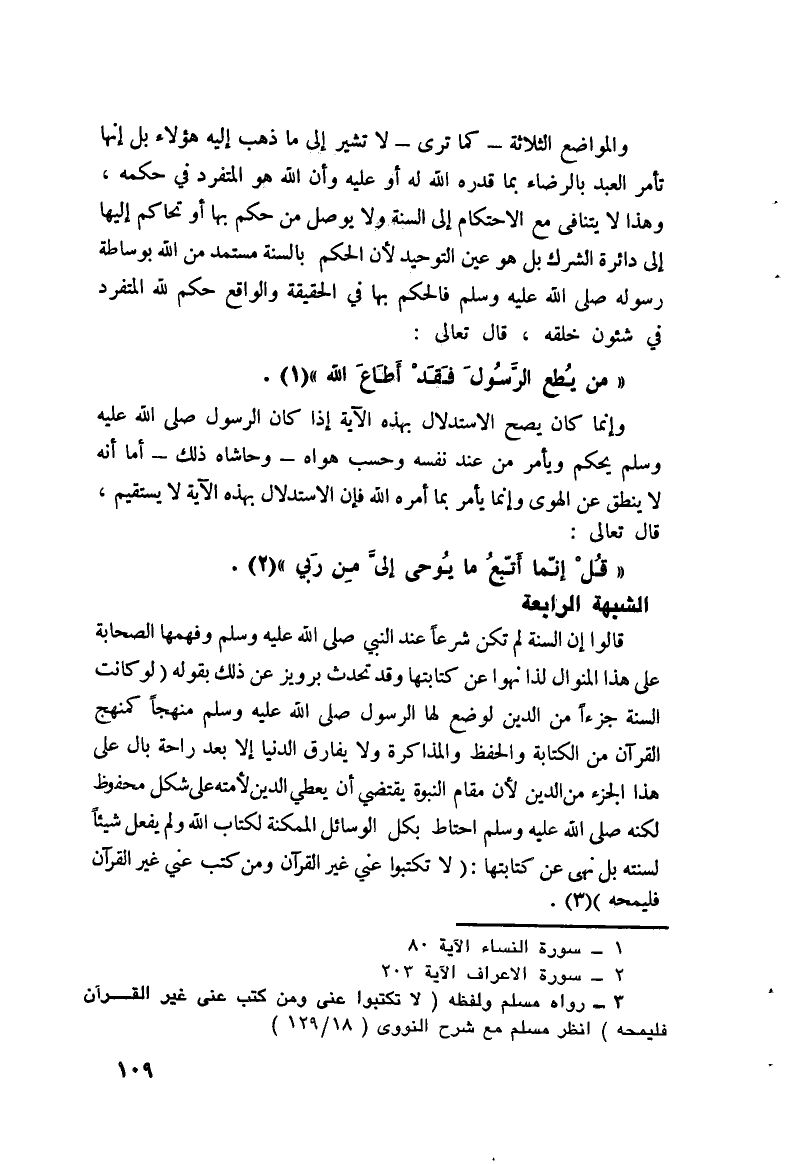 والمواضع الثلاثة – كما ترى – لا تشير إلى ما ذهب إليه هؤلاء بل إنها
تأمر العبد بالرضاء بما قدره الله له أو عليه وأن الله هو المتفرد في حكمه ،
وهذا لا يتنافى مع الاحتكام إلى السنة ولا يوصل من حكم بها أو تحاكم إليها
إلى دائرة الشرك بل هو عين التوحيد لأن الحكم بالسنة مستمد من الله بوساطة
رسوله صلى الله عليه وسلم فالحكم بها في الحقيقة والواقع حكم لله المتفرد
في شئون خلقه ، قال تعالى :
« من يُطع الرَّسُولَ فَقَدْ أَطَاعَ الله »(١) .
وإنما كان يصح الاستدلال بهذه الآية إذا كان الرسول صلى الله عليه
وسلم يحكم ويأمر من عند نفسه وحسب هواه – وحاشاه ذلك – أما أنه
لا ينطق عن الهوى وإنما يأمر بما أمره الله فإن الاستدلال بهذه الآية لا يستقيم ،
قال تعالى :
« قُلْ إنّما أتّبعُ ما يُوحى إليَّ مِن رَبي »(٢) .
الشبهة الرابعة
قالوا إن السنة لم تكن شرعاً عند النبي صلى الله عليه وسلم وفهمها الصحابة
على هذا المنوال لذا نهوا عن كتابتها وقد تحدث برويز عن ذلك بقوله ( لو كانت
السنة جزءاً من الدين لوضع لها الرسول صلى الله عليه وسلم منهجاً كمنهج
القرآن من الكتابة والحفظ والمذاكرة ولا يفارق الدنيا إلا بعد راحة بال على
هذا الجزء من الدين لأن مقام النبوة يقتضي أن يعطي الدين لأمته على شكل محفوظ
لكنه صلى الله عليه وسلم احتاط بكل الوسائل الممكنة لكتاب الله ولم يفعل شيئاً
لسنته بل نهى عن كتابتها : ( لا تكتبوا عني غير القرآن ومن كتب عني غير القرآن
فليمحه )(٣) .
١ – سورة النساء الآية ٨٠
٢ – سورة الاعراف الآية ٢٠٣
٣ – رواه مسلم ولفظه ( لا تكتبوا عنى ومن كتب عنى غير القـــرآن
فليمحه ) انظر مسلم مع شرح النووى ( ١٢٩/١٨ )
١٠٩